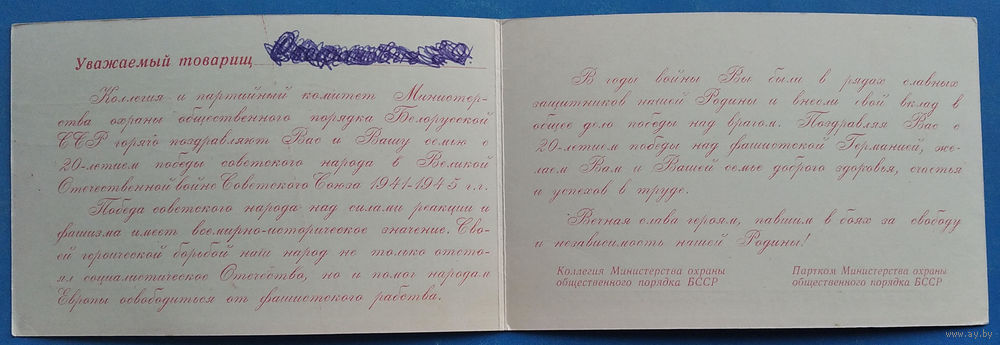 Уважаемый товарищ
Коллегия и партийный комитет Министер-
ства охраны общественного порядка Белорусской
ССР горячо поздравляют Вас и Вашу семью с
20-летием победы советского народа в Великой
Отечественной войне Советского Союза 1941-1945 г.г.
Победа советского народа над силами реакции и
фашизма имеет всемирно-историческое значение. Сво-
ей героической борьбой наш народ не только отсто-
ял социалистическое Отечество, но и помог народам
Европы освободиться от фашистского рабства.
В годы войны Вы были в рядах славных
защитников нашей Родины и внесли свой вклад в
общее дело победы над врагом. Поздравляя Вас с
20-летием победы над фашистской Германией, же-
лаем Вам и Вашей семье доброго здоровья, счастья
и успехов в труде.
Вечная слава героям, павшим в боях за свободу
и независимость нашей Родины!
Коллегия Министерства охраны
общественного порядка БССР
Партком Министерства охраны
общественного порядка БССР
www.ay.by